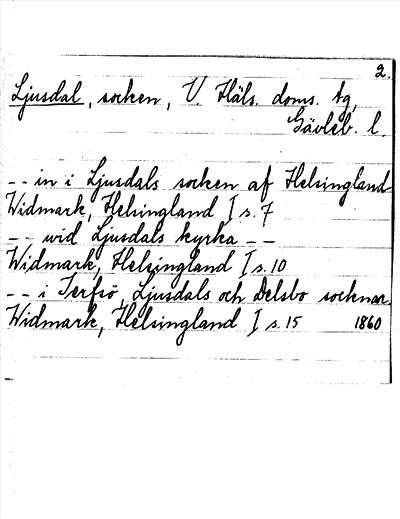 2.
Ljusdal, socken, V. Häls. doms. tg,
Gävleb. l.
-- in i Ljusdals socken af Helsingland
Widmark, Helsingland I s. 7
-- wid Ljusdals kyrka --
Widmark, Helsingland I s. 10
-- i Terfsö, Ljusdals och Delsbo socknar
Widmark, Helsingland I s. 15 1860